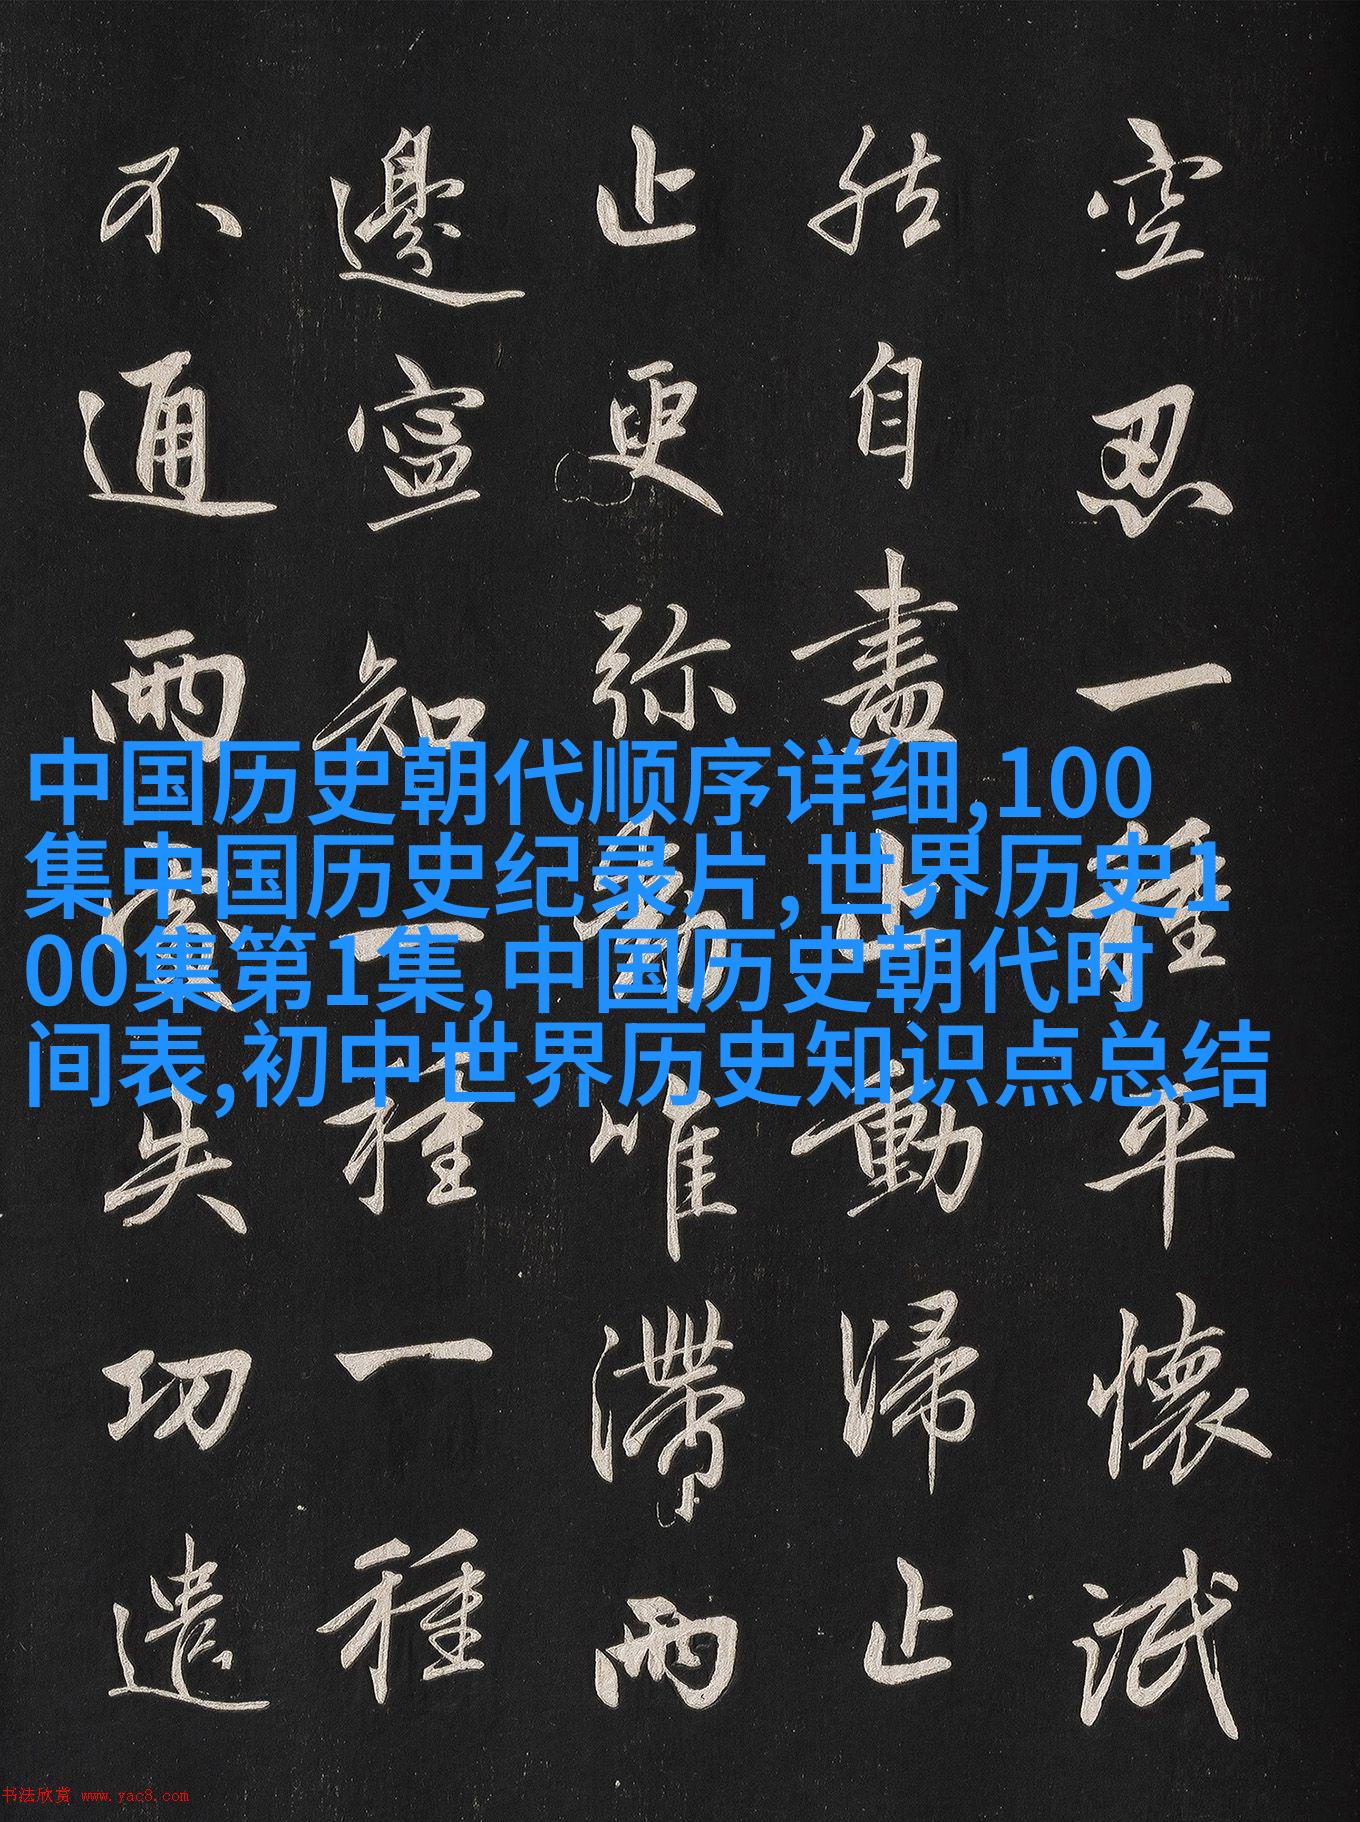 空忍一種平懷泯
然自盡止動歸止
止更弥動唯滯兩
邊寧知一種一種
不通兩處失功遣
中国历史朝代顺序详细,100
集中国历史纪录片,世界历史1
00集第1集,中国历史朝代时
间表,初中世界历史知识点总结
书法欣赏 www.yac8.com